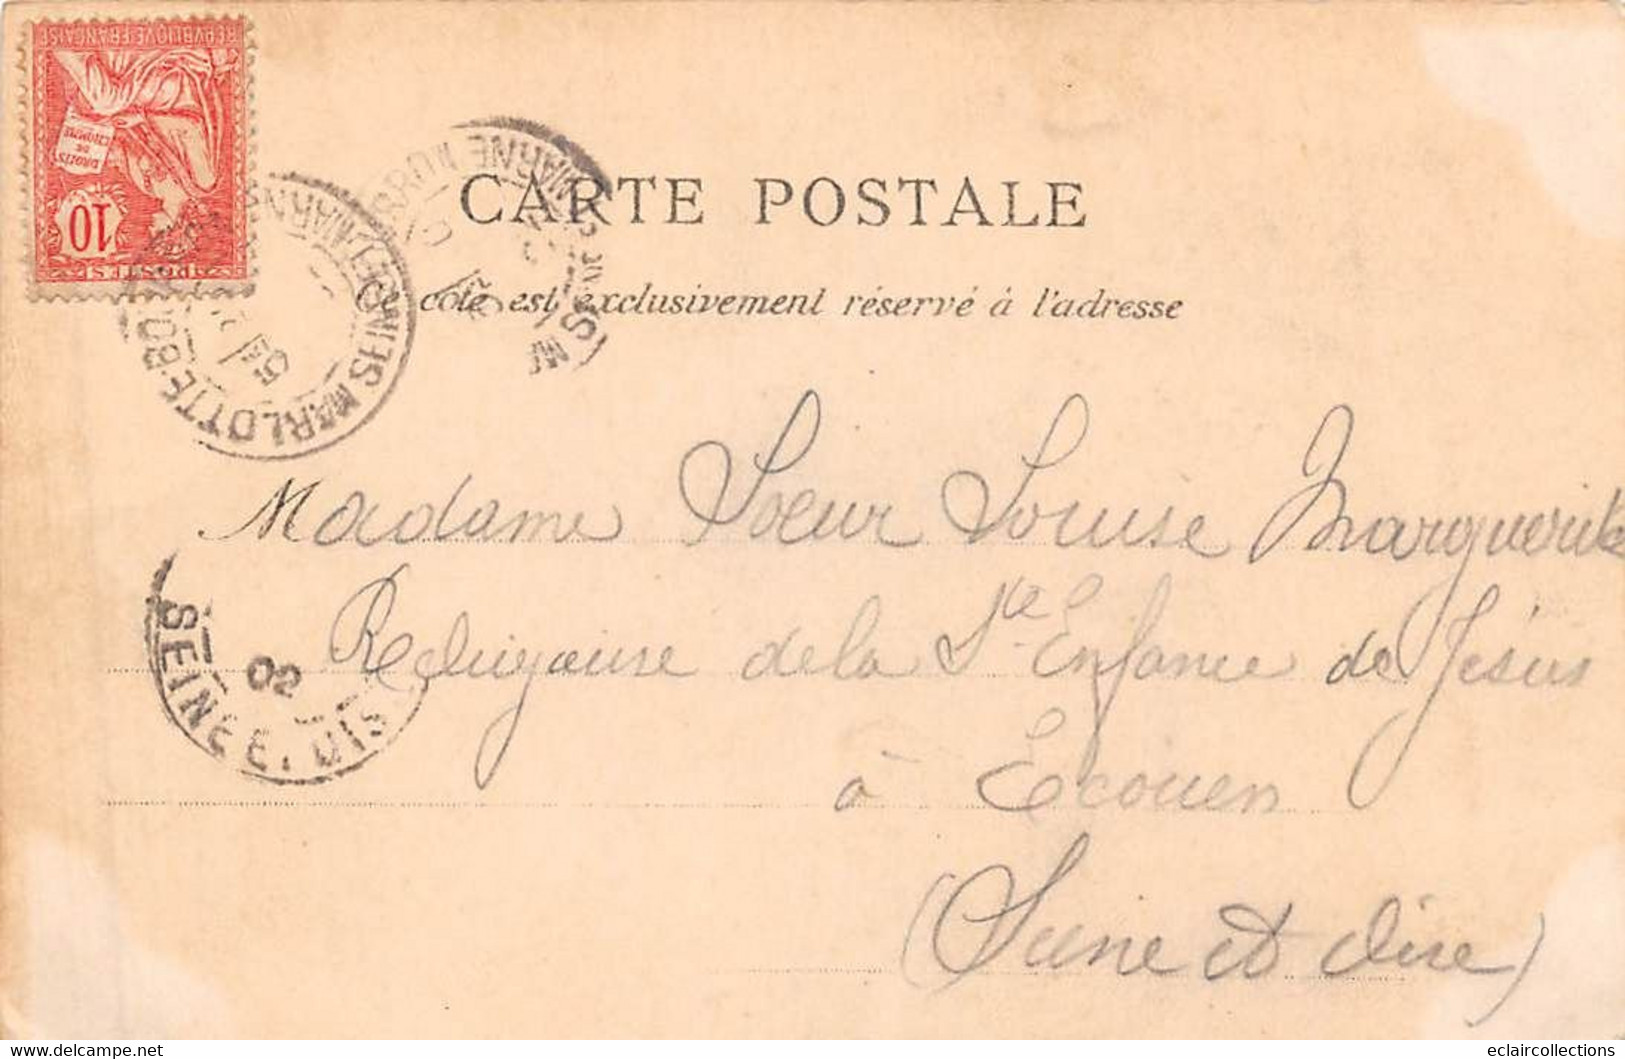 RÉPUBLIQUE FRANÇAISE
DROITS
DE
L'HOMME
10
POSTES
CARTE POSTALE
Ce côté est exclusivement réservé à l'adresse
MARLOTTE-BOURRON SEINE-ET-MARNE
02
Madame Sœur Louise Marguerite
Religieuse de la Ste Enfance de Jésus
à Ecouen
(Seine et Oise)
SEINE-E.-OIS
02
eclaircollections
www.delcampe.net